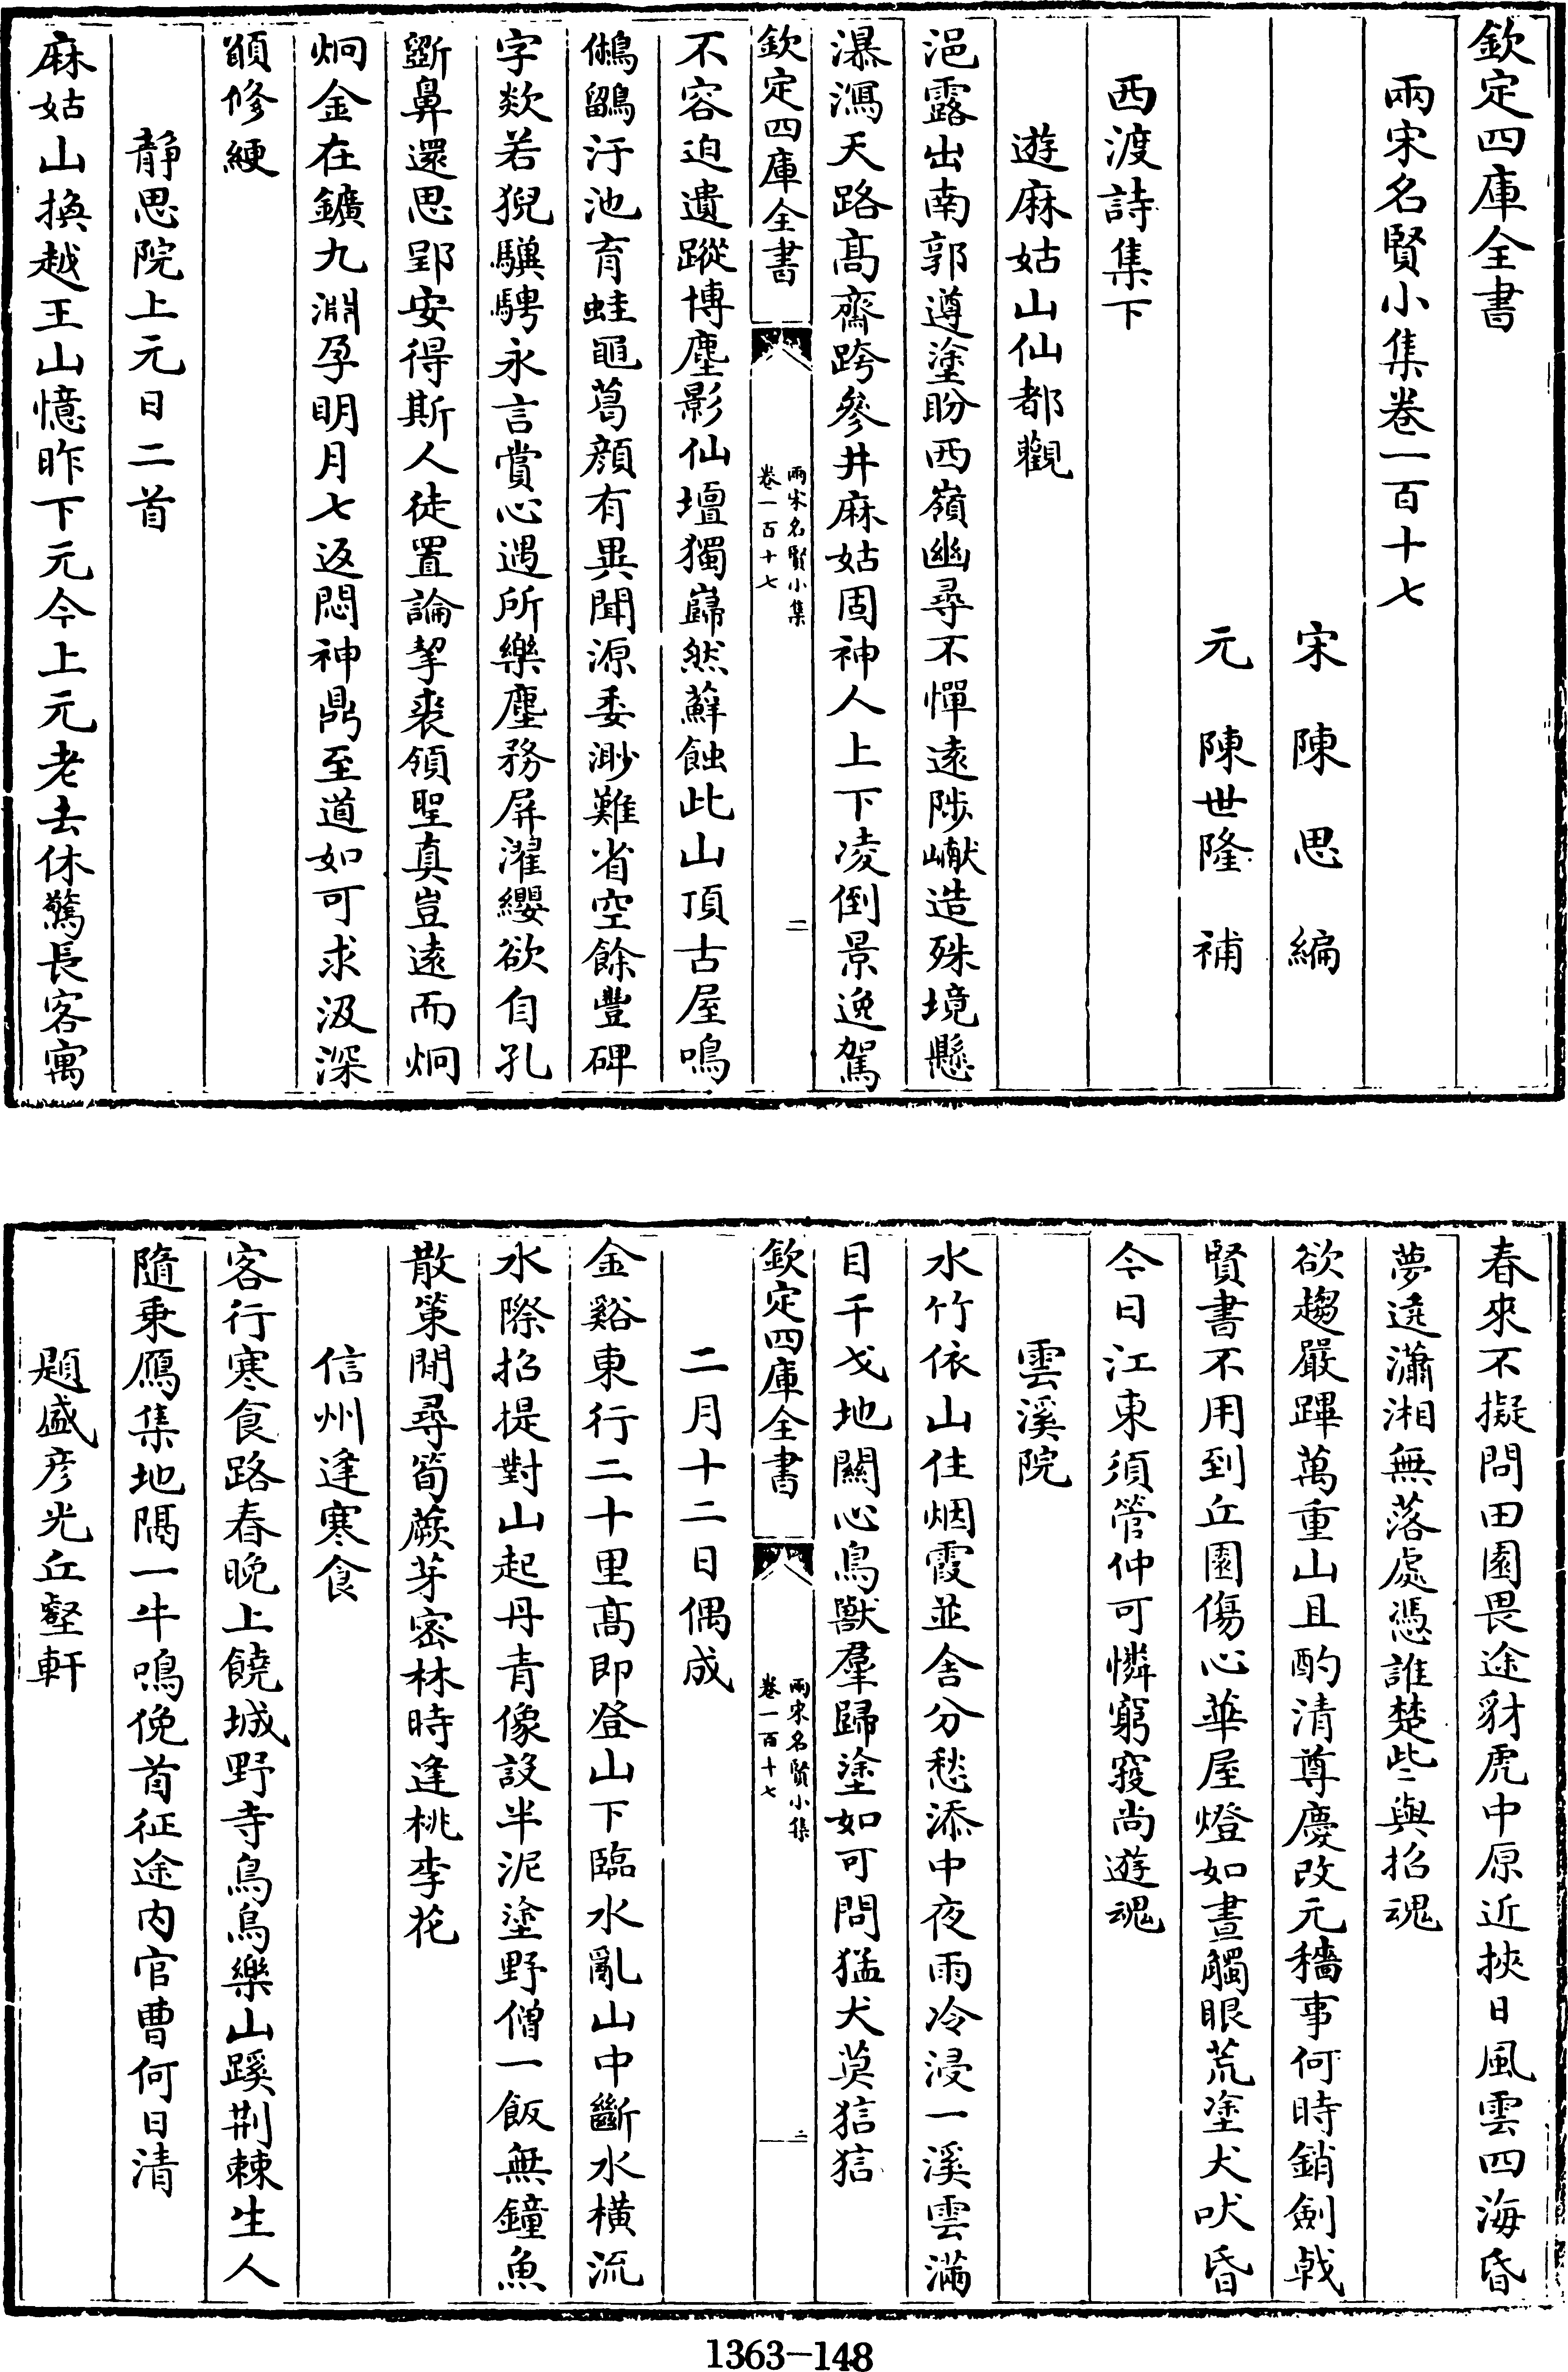 欽定四庫全書
兩宋名賢小集卷一百十七
宋 陳思 編
元 陳世隆 補
西渡詩集下
遊麻姑山仙都觀
浥露出南郭遵塗盼西嶺幽尋不憚遠陟巘造殊境懸
瀑瀉天路髙齋跨參井麻姑固神人上下凌倒景逸駕
欽定四庫全書
兩宋名賢小集
卷一百十七
二
不容迫遺蹤博塵影仙壇獨巋然蘚蝕此山頂古屋鳴
鵂鶹汙池育蛙黽葛顔有異聞源委渺難省空餘豐碑
字欻若猊驥騁永言賞心遇所樂塵務屏濯纓欲自孔
斵鼻還思郢安得斯人徒置論挈裘領聖真豈遠而炯
炯金在鑛九淵孕明月七返悶神鼎至道如可求汲深
顧修綆
靜思院上元日二首
麻姑山換越王山憶昨下元今上元老去休驚長客寓
春來不擬問田園畏途豺虎中原近挾日風雲四海昏
夢遶瀟湘無落處憑誰楚些與招魂
欲趨嚴蹕萬重山且酌清尊慶改元穡事何時銷劍戟
賢書不用到丘園傷心華屋燈如晝觸眼荒塗犬吠昏
今日江東須管仲可憐窮寇尚遊魂
雲溪院
水竹依山住烟霞並舍分愁添中夜雨冷浸一溪雲滿
目千戈地闗心鳥獸羣歸塗如可問猛犬莫狺狺
欽定四庫全書
兩宋名賢小集
卷一百十七
二
二月十二日偶成
金谿東行二十里髙即登山下臨水亂山中斷水橫流
水際招提對山起丹青像設半泥塗野僧一飯無鐘魚
散策閒尋筍蕨芽密林時逢桃李花
信州逢寒食
客行寒食路春晚上饒城野寺烏烏樂山蹊荆棘生人
隨乗鴈集地隔一牛鳴俛首征途内官曹何日清
題盛彦光丘壑軒
1363-148